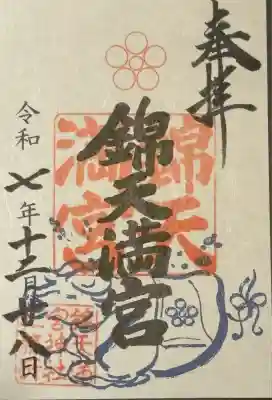 奉拝
錦天満宮
錦天
満宮
令和七年十二月廿八日